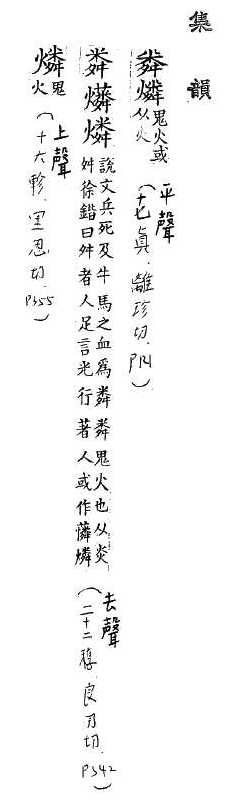 集韻
粦燐 鬼火或从火（平聲 十七眞．離珍切．P121）
粦𤑿燐 說文兵死及牛馬之血爲粦粦鬼火也从炎舛徐鍇曰舛者人足言光行著人或作𤑿燐（去聲 二十二稕．良刃切．P542）
燐 鬼火（上聲 十六軫．里忍切．P355）